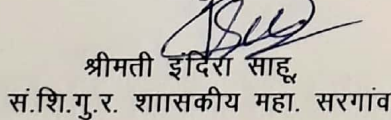 श्रीमती इंदिरा साहू,
सं.शि.गु.र. शाासकीय महा. सरगांव